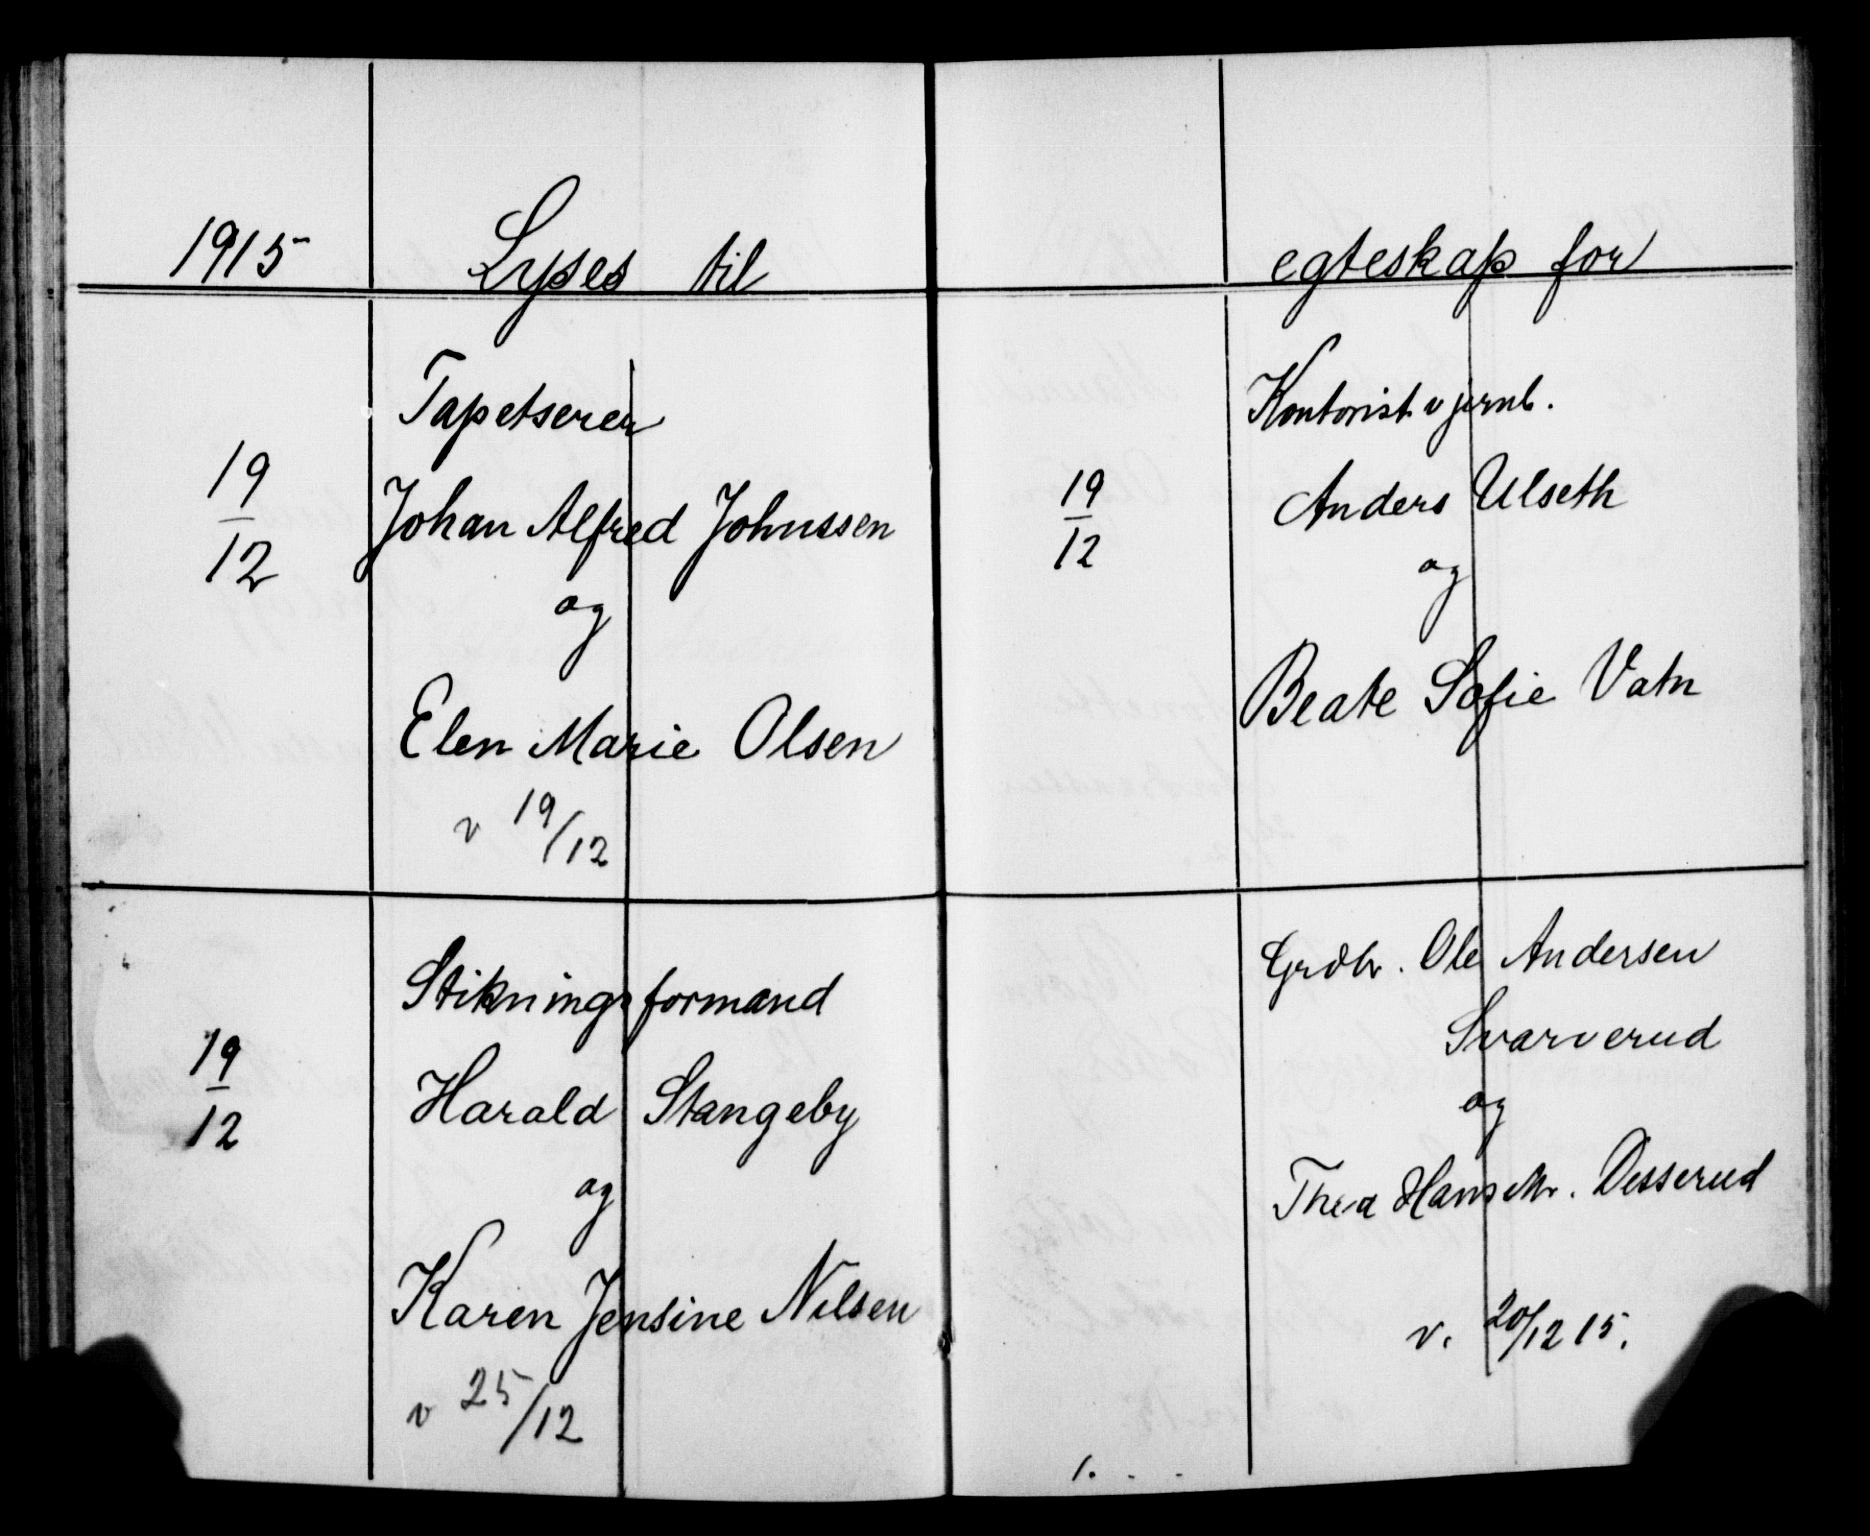 1915 Lyses til
Tapetserer
19
12
Johan Alfred Johnssen
og
Elen Marie Olsen
v 19/12
Stikningsformand
19
12
Harald Stangeby
og
Karen Jensine Nilsen
v 25/12
egteskap for
Kontorist v jernb.
19
12
Anders Ulseth
og
Beate Sofie Vatn
Grdbr. Ole Andersen
Svarverud
og
Thea Desserud
v. 20/12 15.